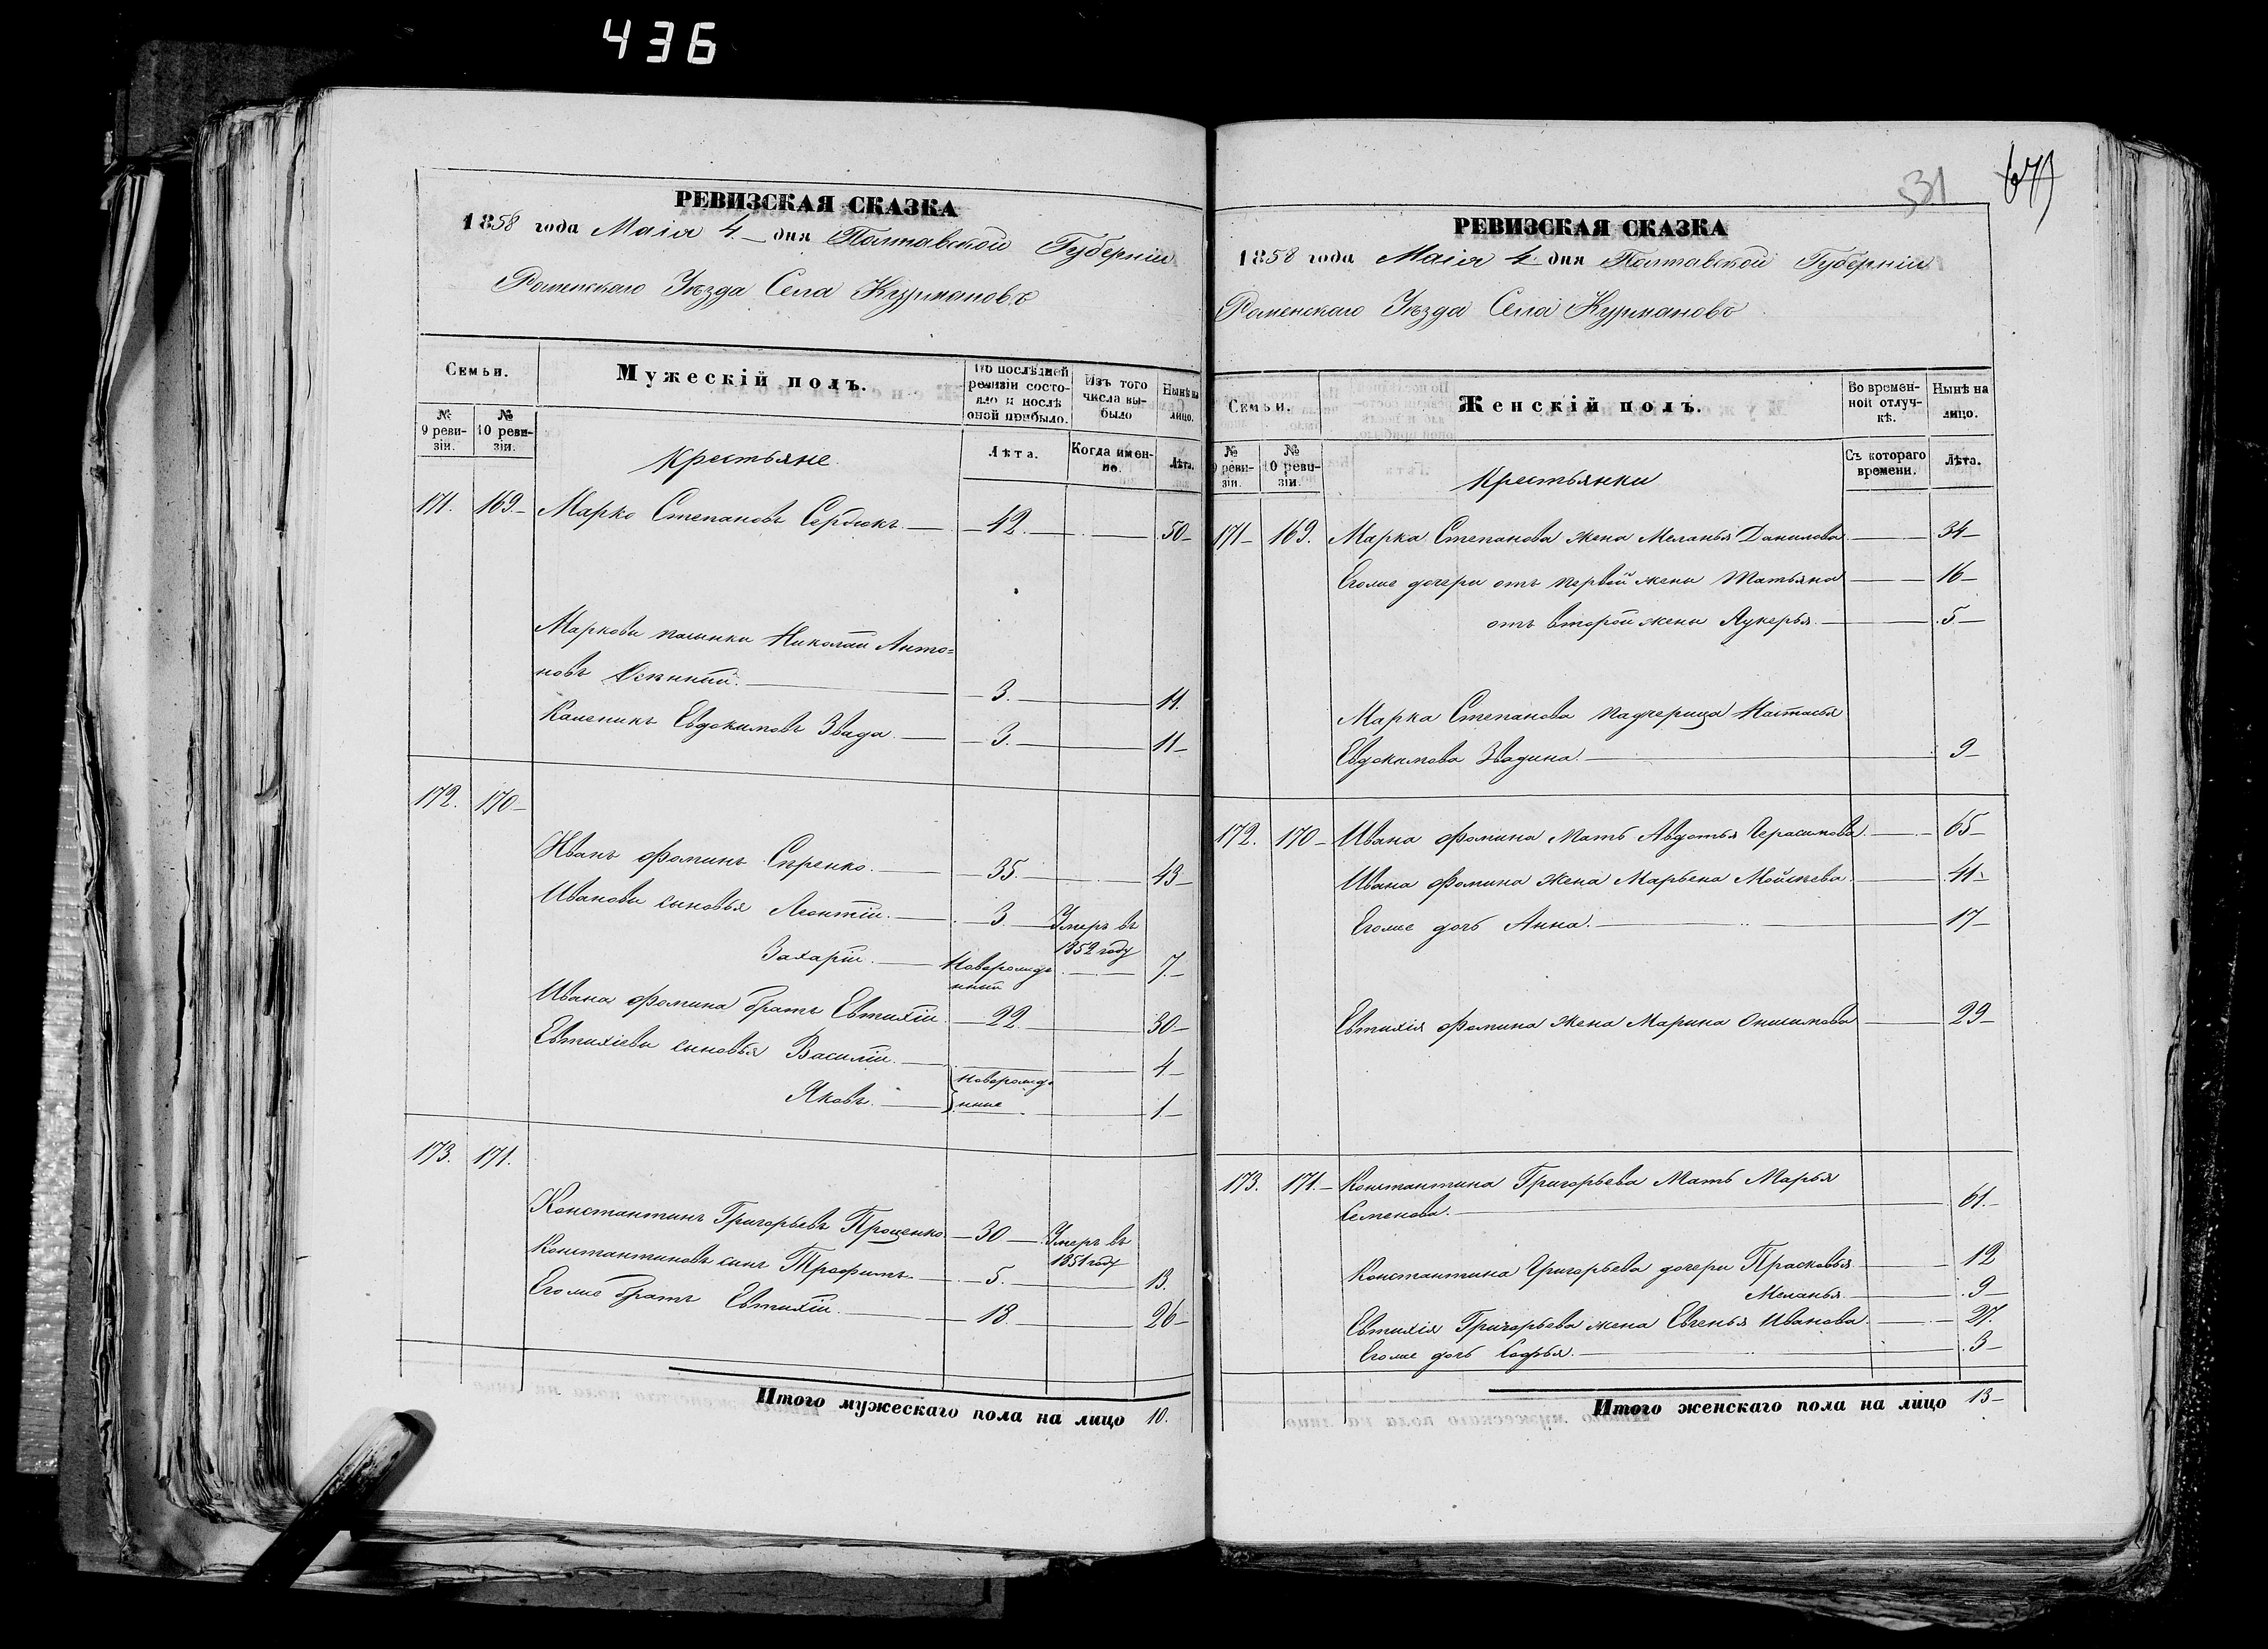 436
РЕВИЗСКАЯ СКАЗКА
1858 года Маія 4 дня Полтавской Губерніи
Роменскаго Уѣзда Села Курмановъ
Семьи.
Мужескій полъ.
По послѣдней ревизіи состояло и послѣ оной прибыло.
Изъ того числа выбыло
Нынѣ на лицо.
№ 9 ревизіи.
№ 10 ревизіи.
Крестьяне
Лѣта.
Когда именно.
Лѣта.
171. 169. Марко Степановъ Сердюкъ. 42. 50
Маркови пасинки Николай Анто=
новъ 3. 11.
Каленикъ Евдокимовъ Звада 3. 11
172. 170
Иванъ Фоминъ Сѣренко. 35. 43
Иванови сыновья Леонтій. 3. Умеръ въ 1852 году
Захарій. Новорожденный 7.
Ивана Фомина братъ Евтихій 22. 30
Евтихіеви сыновья Василій. 4
Яковъ. Новорожденные 1.
173. 171.
Константинъ Григорьевъ Проценко 30 Умеръ въ 1851 году
Константиновъ синъ Трофимъ. 5. 13.
Егоже братъ Евтихій. 18. 26
Итого мужескаго пола на лицо 10.
531
РЕВИЗСКАЯ СКАЗКА
1858 года Маія 4 дня Полтавской Губерніи
Роменскаго Уѣзда Села Курмановъ
Семьи.
Женскій полъ.
Во временной отлучкѣ.
Нынѣ на лицо.
№ 9 ревизіи.
№ 10 ревизіи.
Крестьянки
Съ котораго времени.
Лѣта.
171 169. Марка Степанова жена Меланья Данилова 34
Егоже дочери отъ первой жены Татьяна 16
отъ второй жены Лукерья. 5
Марка Степанова падчерица Настасья
Евдокимова Звадина. 9
172. 170 Ивана Фомина мать Авдотья Герасимова 65
Ивана Фомина жена Марьена Мойсѣева 41
Егоже дочь Анна. 17
Евтихія Фомина жена Марина Онисимова 29
173. 171. Константина Григорьева мать Марья
Семенова. 61.
Константина Григорьева дочери Прасковья 12
Меланья. 9
Евтихія Григорьева жена Евгенья Иванова. 27.
Егоже дочь Софья. 3
Итого женскаго пола на лицо 13